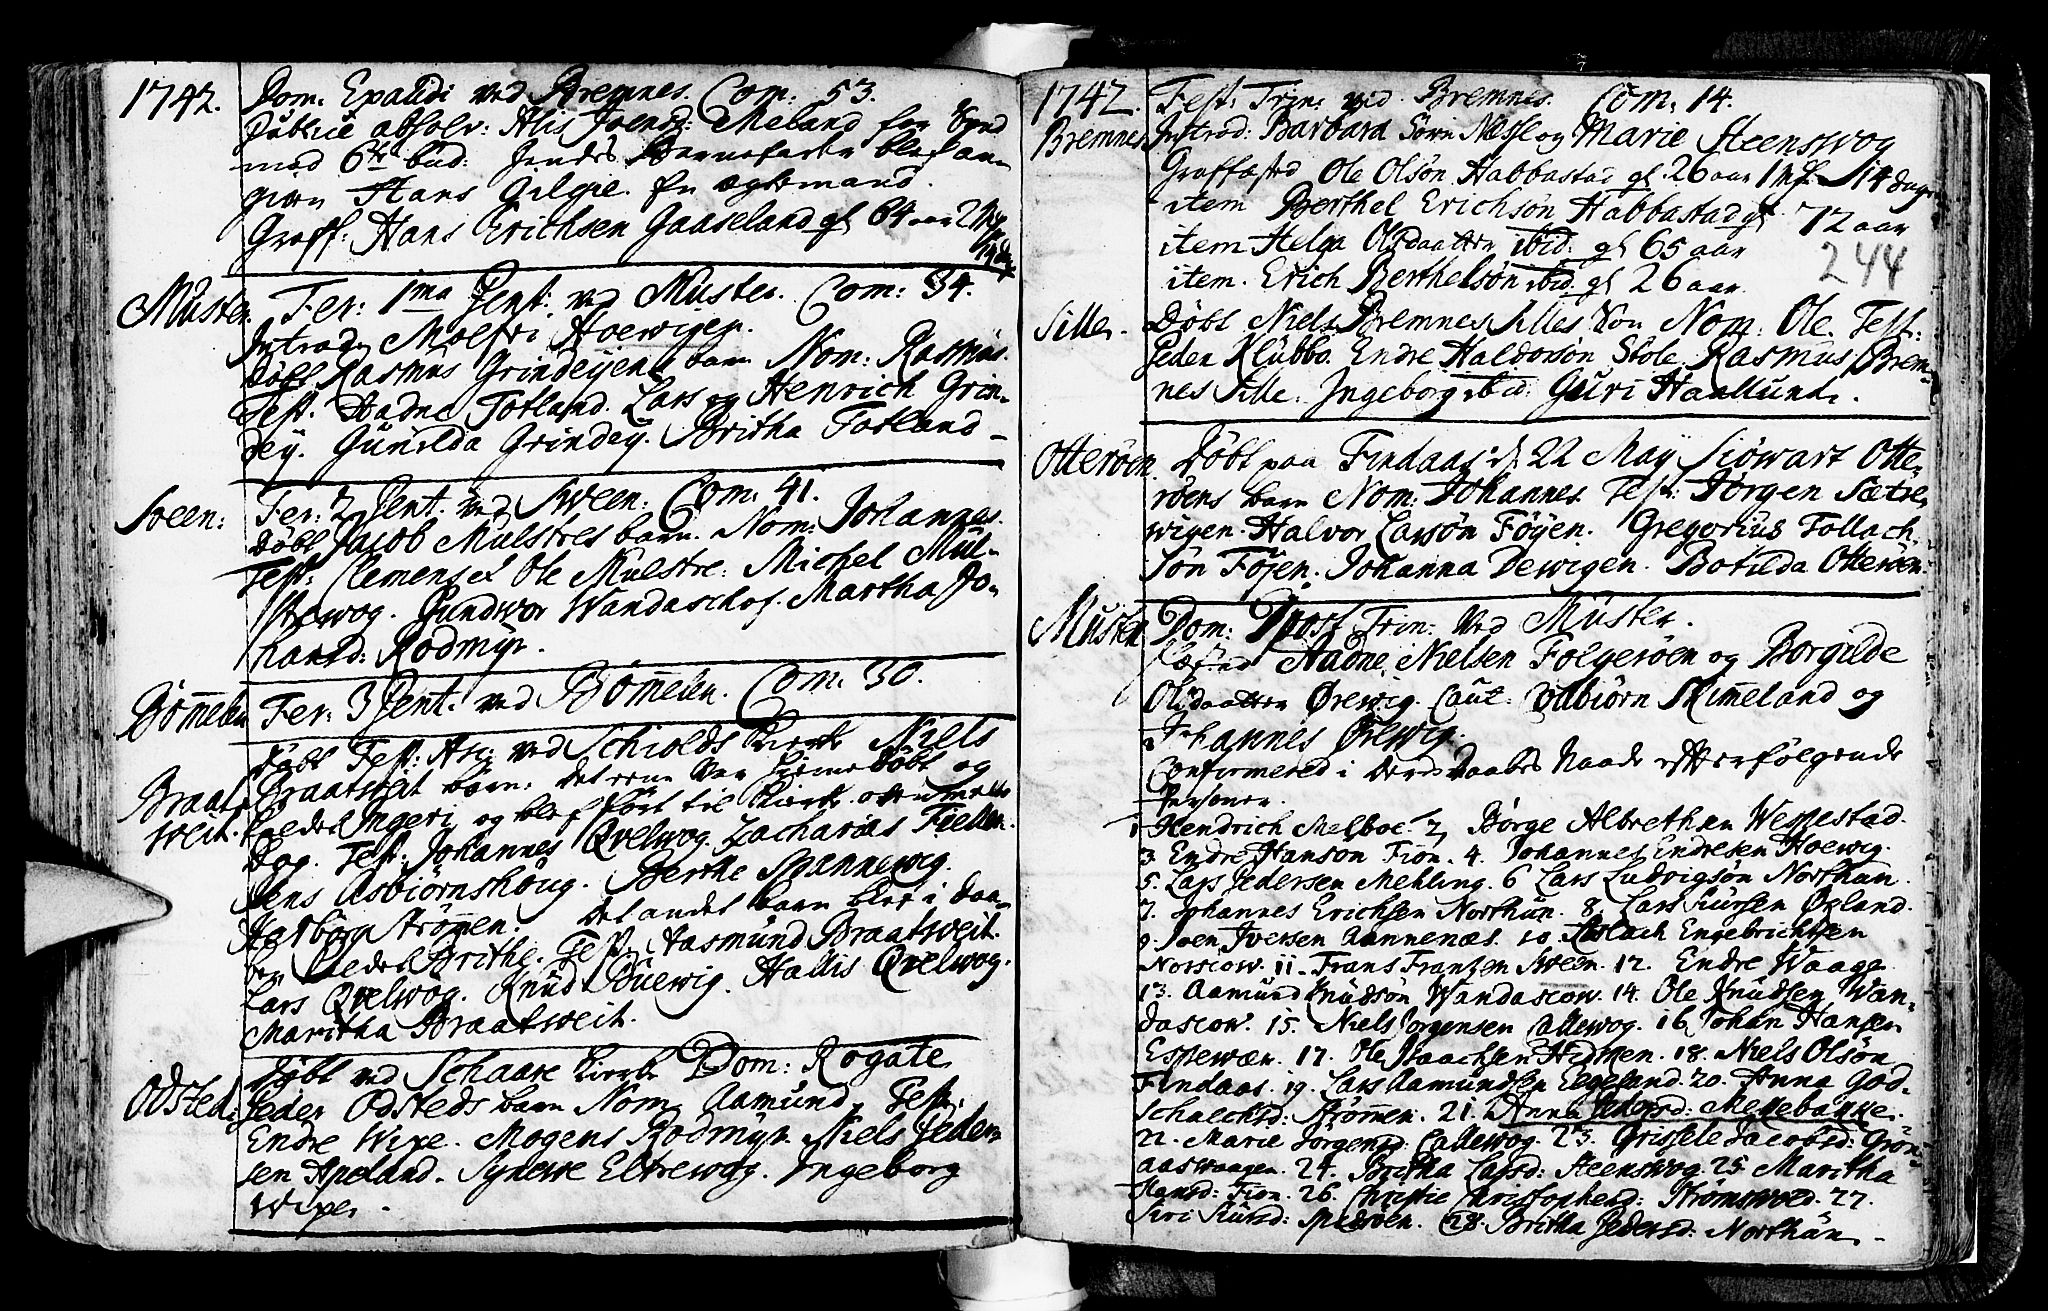 1742.
Dom. Exaudi ved Bremnes. Com: 53.
publicè absolv: Alis Joensd: Meland for Synd
mod 6te bud: Hans Gilgie. En ægtemand.
Graff: Hans Erichsen Gaaseland gl 64 aar 2
Müster.
Fer: 1ma Pent: ved Müster. Com: 34.
Introd. Molfri Hoewigen.
Døbt Rasmus Grindeyens barn Nom: Rasmus.
Test. Aadne Totland. Lars og Henrich Grin-
dey. Gunilda Grindey. Britha Totland
Sveen:
Fer: 2 Pent. ved Sween. Com. 41.
Døbt Jacob Mulstres barn. Nom: Johannes.
Test: Clemens et Ole Mulstre: Michel Mül-
strewog. Gundwor Wandaschof. Martha Jo-
hansd: Rodmyr.
Bømelen
Fer: 3 Pent. ved Bømelen. Com. 30.
Braat-
sveit.
Døbt Fest: Asc: ved Schiolds Kierke Niels
Braatsveit børn: det eene var hiemedøbt og
kaldet Ingeri og blef ført til Kierke
Dag. Test: Johannes Qvelwog. Zacharias
Jens Asbiørnshoug. Berthe Spanneweg.
Harborg Strømen. Det andet barn blev i Daa-
ben kaldet Brithe. Test. Aasmund Braatsveit.
Lars Qvelwog. Knud Buewig. Hallis Qvelwog.
Maritha Braatsveit.
Odsted:
Døbt ved Schaare Kierke Dom: Rogate
Peder Odsteds barn Nom. Aamund. Test.
Endre Wixe. Mogens Rodmyr. Niels Peder-
sen Apeland. Synewe Eltrewog. Ingeborg
Wixe.
1742.
Fest: Trin: ved Bremnes. Com. 14.
Bremnes
Introd: Barbara Sørn Næsse og Marie Steenswog
Graffæsted Ole Olsøn Habbastad gl 26 aar 14 dage
item Berthel Erichsøn Habbastad gl 72 aar
item Helga Olsdaatter ibid: gl 65 aar
244
item. Erich Berthelsøn ibid. gl 26 aar
Sille.
Døbt Niels Bremnes Silles Søn Nom: Ole. Test:
Peder Klubbo. Endre Haldorsøn Stole. Rasmus Brem-
nes Sille. Ingeborg ibid: Guri Haallund.
Otterøen.
Døbt paa Findaas d. 22 May Siöwart Otte-
røens barn Nom: Johannes. Test: Jørgen Sætre-
wigen. Halvor Larsøn Føyen. Gregorius Tollach-
søn Føjen. Johanna Dewigen. Botilda Otterøen.
Müster
Dom: 1 post Trin: ved Müster.
Fæsted Aadne Nielsen Folgerøen og Borgilde
Olsdaatter Ørewig. Caut: Villbiørn Skimeland og
Johannes Ørewig.
Confirmered i Deres Daabes Naade efterfølgende
Personer.
1 Hendrich Melboe. 2, Børge Albrethsen Weppestad.
3. Endre Hansøn Fion. 4. Johannes Endresen Hoewig.
5. Lars Pedersen Mehling. 6 Lars Ludvigsøn Northun.
7. Johannes Erichsen Northun. 8. Lars Siursen Øgland.
9. Joen Iversen Aannenæs. 10 Aslach Engebrichtsen
Norsiow. 11. Frans Frantzen Sween. 12. Endre Waage
13. Aamund Knudsøn Wandascow. 14. Ole Knudsen Wan-
dascow. 15. Niels Jorgensen Callewog. 16 Johan Hansen
Espewær. 17. Ole Isaachsen Hidlen. 18. Niels Olsøn
Findaas. 19. Lars Aamundsen Eegeland. 20. Anna God-
schalchsd: Strømen. 21. Anna Pedersd: Mellebakke.
22. Marie Jørgensd: Callewog. 23. Grissele Jacobsd: Grøn-
aaswaagen. 24. Britha Larsd: Steenswog. 25. Maritha
Hansd: Fion. 26. Christie Christophersd: Strømswold. 27.
Siri Siursd: Spidsøen. 28. Britha Pedersd: Northun.